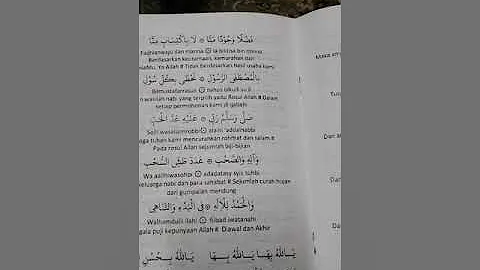 فَضْلًا وَجُوْدًا مِنَّا ۞ لَا بِاكْتِسَابٍ مِنَّا
Fadhlanwaju dan minna ۞ la biktisa bin minna
Berdasarkan keutamaan, kemurahan dari
Mu, Ya Allah # Tidak berdasarkan hasil usaha kami
بِالْمُصْطَفَى الرَّسُوْلِ ۞ نَحْظَى بِكُلِّ سُوْلِ
Bilmustafarrasuli ۞ nahdo bikulli suli
nabi yang terpilih yaitu Rosul Allah # Dalam
setiap permohonan kami di qabahi
صَلَّى وَسَلِّمْ رَبِّي ۞ عَلَيْهِ عَدَّ الْحَبِّ
Solli wasallimrobbi ۞ alaihi 'addalhabbi
tuhan kami mencurahkan rohmat dan salam #
Pada rosul Allah sejumlah biji-bijian
وَآلِهِ وَالصَّحْبِ ۞ عَدَدَ طَشِّ السُّحْبِ
Wa aalihiwasohbi ۞ adadatasy syis suhbi
keluarga nabi dan para sahabat # Sejumlah curah hujan
dari gumpalan mendung
وَالْحَمْدُ لِلْإِلَهِ ۞ فِى الْبَدْءِ وَالتَّنَاهِى
Walhamdulil ilahi ۞ filbad iwatanahi
gala puji kepunyaan Allah # Diawal dan Akhir
يَا اَللهُ بِهَا يَا اَللهُ بِهَا يَا اَللهُ بِحُسْنِ
Maka
Dan